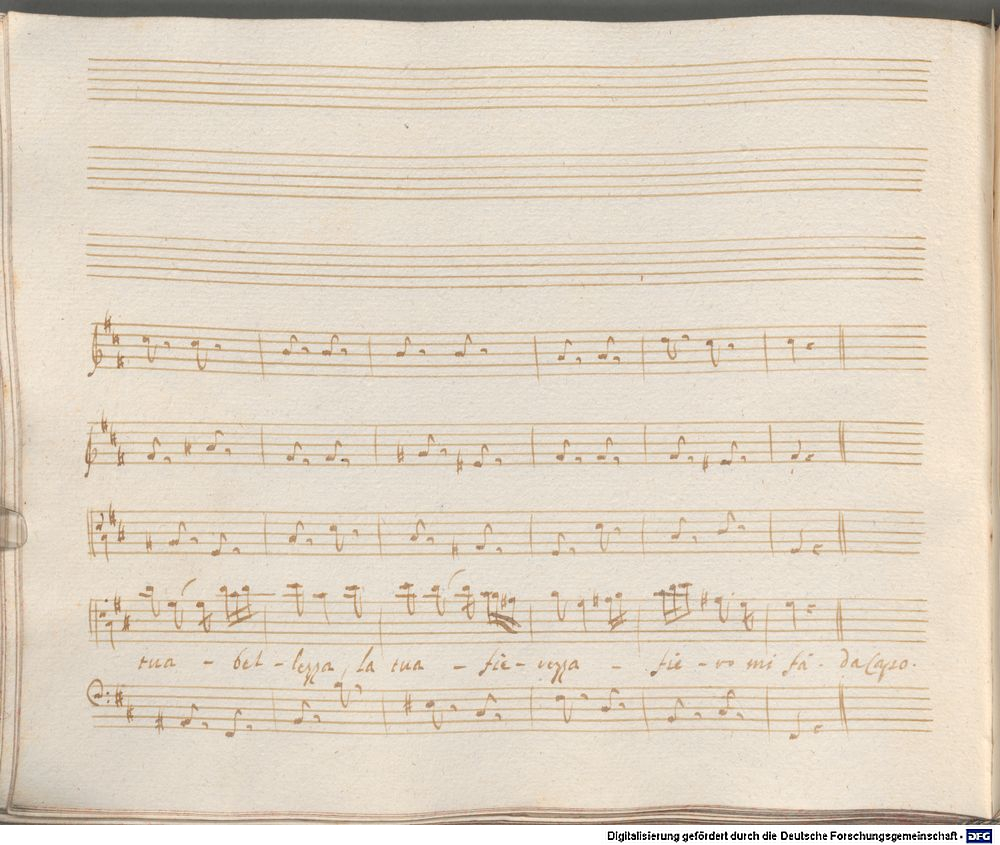 tua - bel - lezza, la tua - fie - rezza - fie - ro mi fà. da Capo.
Digitalisierung gefördert durch die Deutsche Forschungsgemeinschaft - DFG